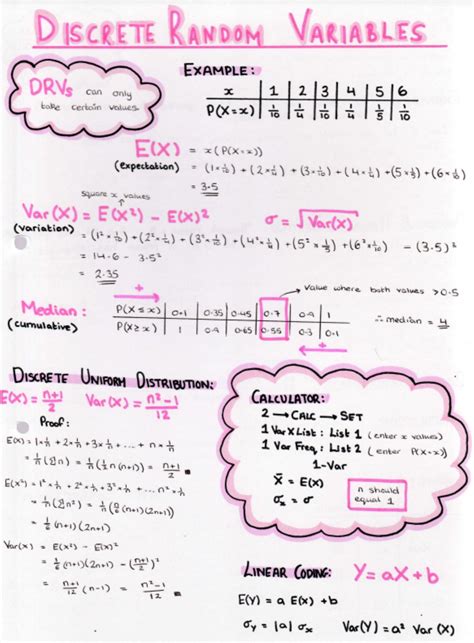 DISCRETE RANDOM VARIABLES
DRVs can only
take certain values.
EXAMPLE:
x | 1 | 2 | 3 | 4 | 5 | 6
P(X=x) | 1/10 | 1/4 | 1/10 | 1/4 | 1/5 | 1/10
E(X) = x(P(X=x))
(expectation) = (1×1/10) + (2×1/4) + (3×1/10) + (4×1/4) + (5×1/5) + (6×1/10)
= 3.5
square x values
Var(X) = E(X²) - E(X)² σ = √Var(X)
(variation) = (1²×1/10) + (2²×1/4) + (3²×1/10) + (4²×1/4) + (5²×1/5) + (6²×1/10) - (3.5)²
= 14.6 - 3.5²
= 2.35
+
value where both values >0.5
Median: P(X≤x) | 0.1 | 0.35 | 0.45 | 0.7 | 0.9 | 1
(cumulative) P(X≥x) | 1 | 0.9 | 0.65 | 0.55 | 0.3 | 0.1
∴ median = 4
+
DISCRETE UNIFORM DISTRIBUTION:
E(X) = n+1/2 Var(X) = n²-1/12
Proof:
E(X) = 1×1/n + 2×1/n + 3×1/n ... + n×1/n
= 1/n(∑n) = 1/n(½n(n+1)) = n+1/2
E(X²) = 1²×1/n + 2²×1/n + 3²×1/n ... n²×1/n
= 1/n(∑n²) = 1/n(n/6(n+1)(2n+1))
= 1/6(n+1)(2n+1)
Var(X) = E(X²) - E(X)²
= 1/6(n+1)(2n+1) - (n+1/2)²
= n+1/12(n-1) = n²-1/12
CALCULATOR:
2 → CALC → SET
1 Var XList : List 1 (enter x values)
1 Var Freq : List 2 (enter P(X=x))
1-Var
x̄ = E(X)
σx = σ
n should
equal 1
LINEAR CODING: Y=aX+b
E(Y) = a E(X) + b
σY = |a| σx Var(Y) = a² Var(X)